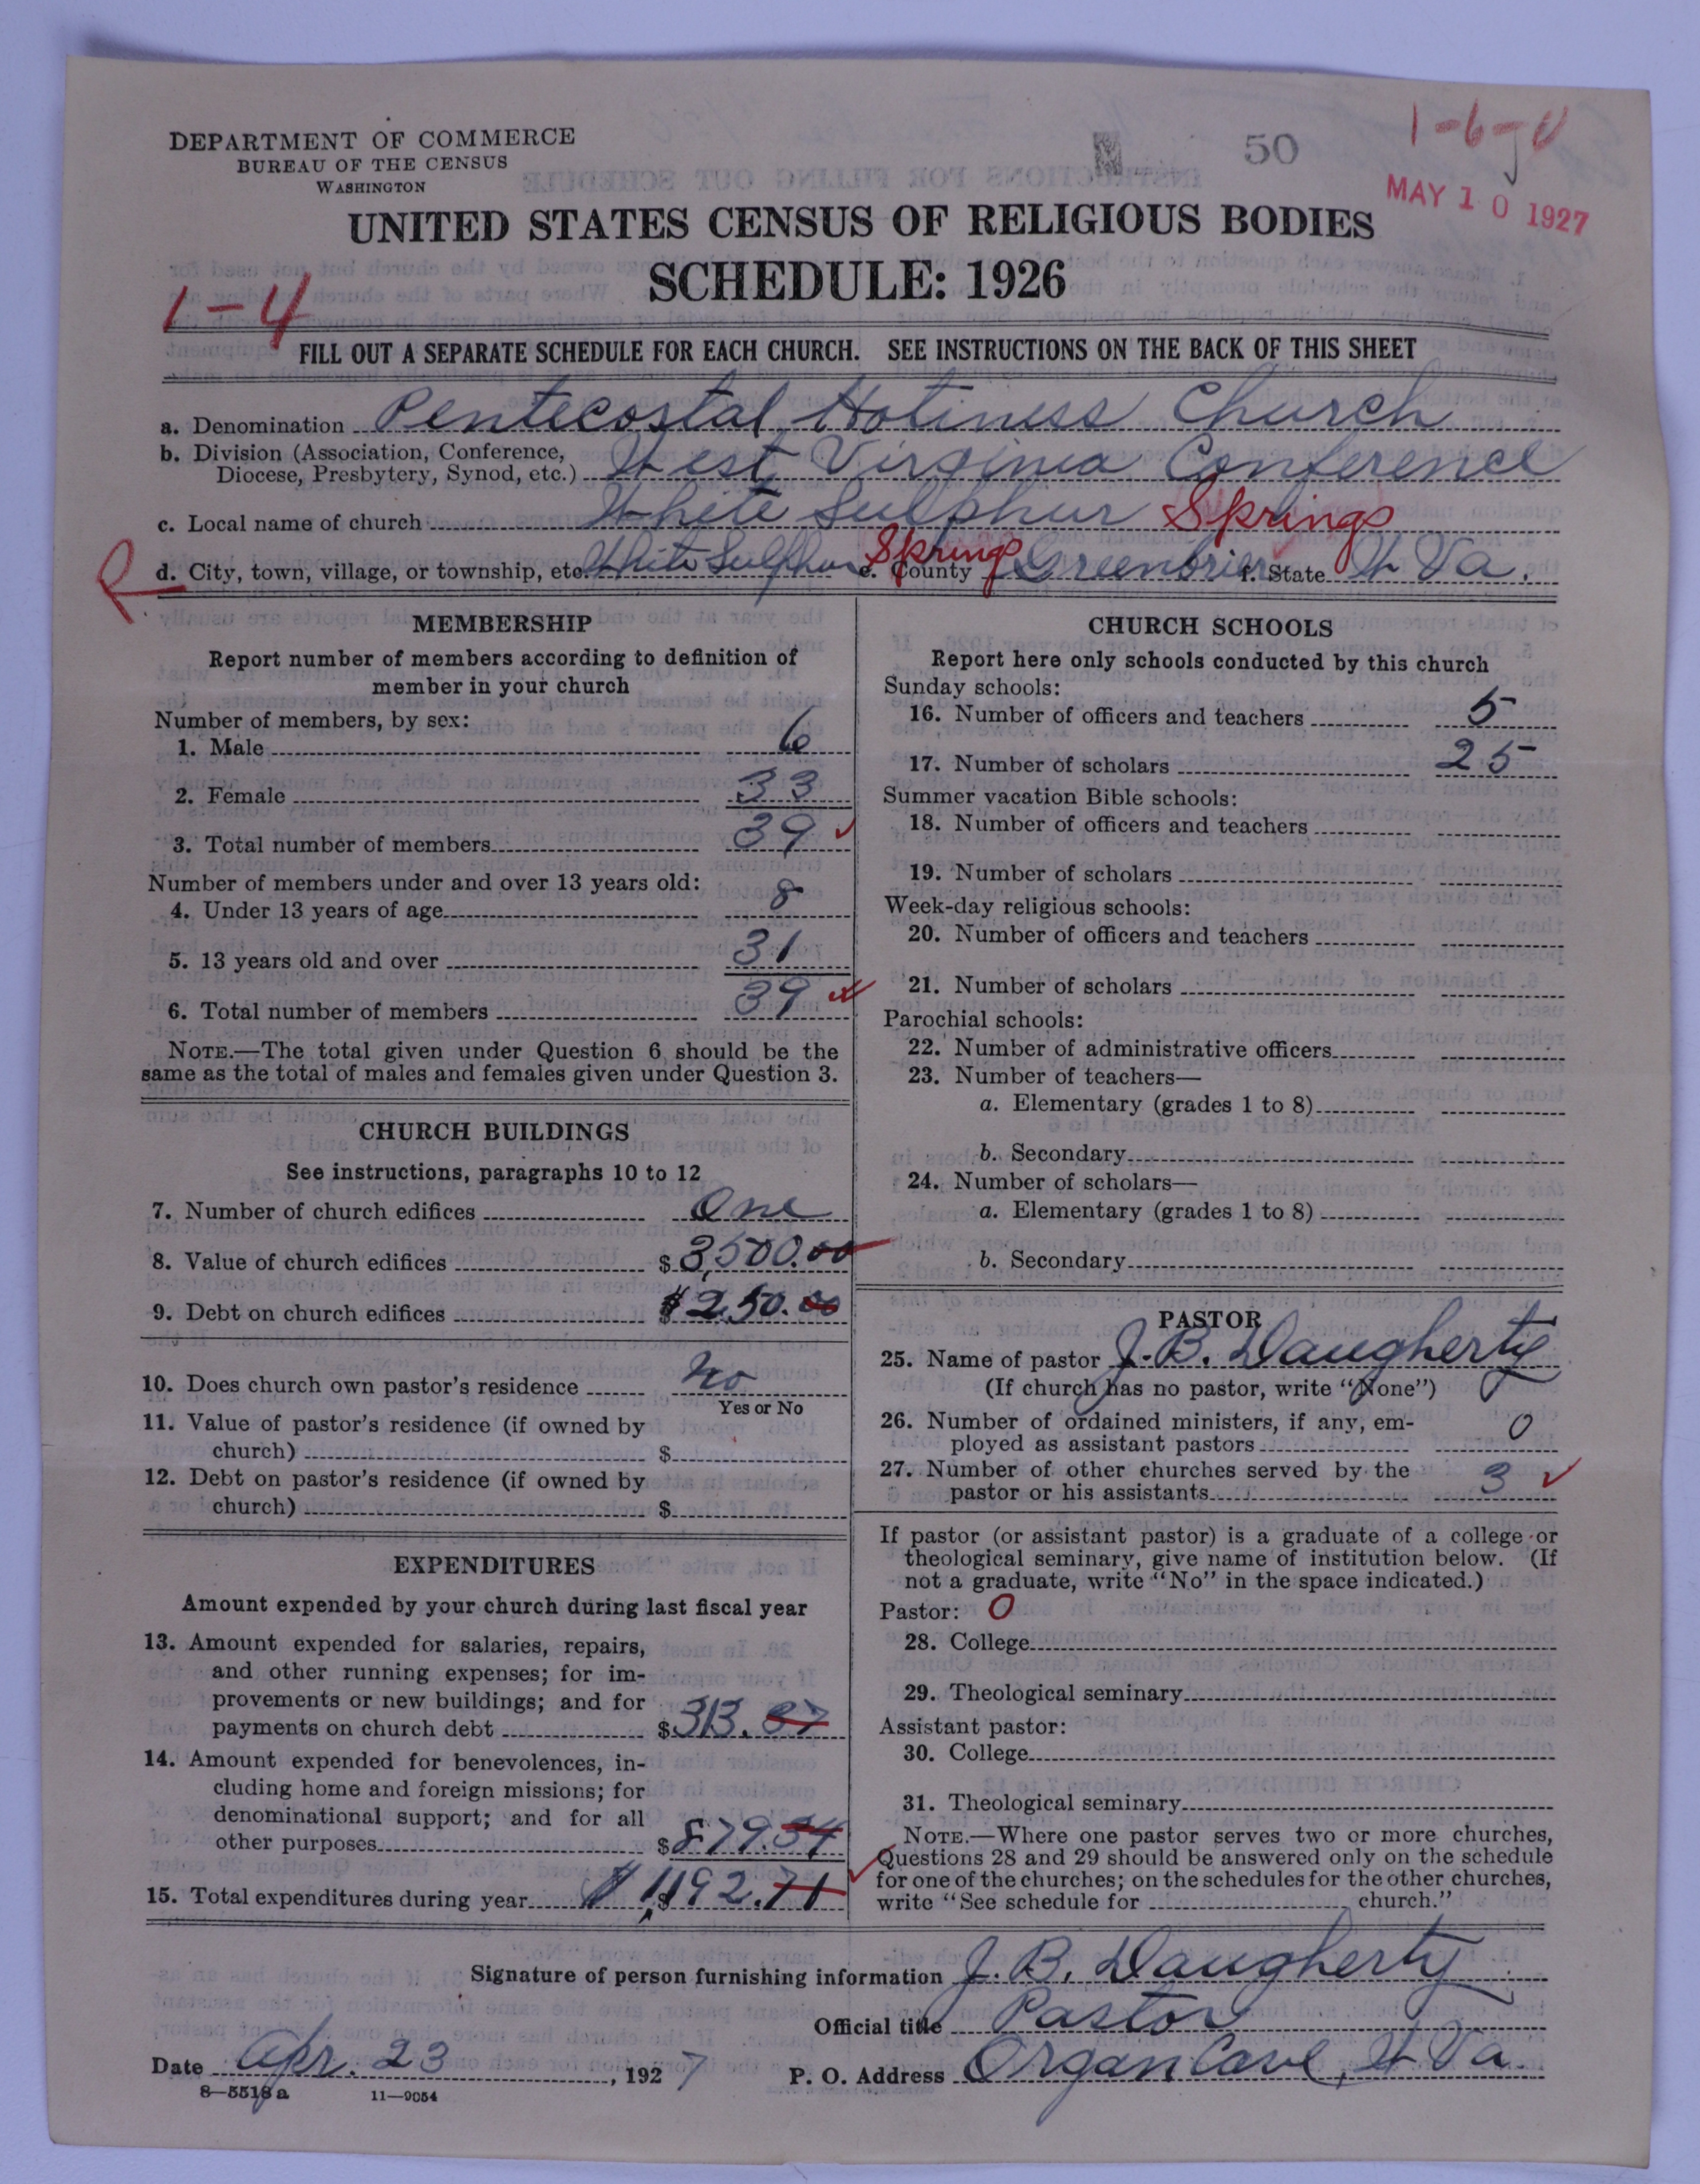 DEPARTMENT OF COMMERCE
BUREAU OF THE CENSUS
WASHINGTON
50
MAY 10 1927
UNITED STATES CENSUS OF RELIGIOUS BODIES
SCHEDULE: 1926
1-4
FILL OUT A SEPARATE SCHEDULE FOR EACH CHURCH. SEE INSTRUCTIONS ON THE BACK OF THIS SHEET
a. Denomination Pentecostal Holiness Church
b. Division (Association, Conference,
Diocese, Presbytery, Synod, etc.) West Virginia Conference
c. Local name of church White Sulphur Springs
R d. City, town, village, or township, etc. White Sulphur Springs e. County Greenbrier f. State W Va.
MEMBERSHIP
Report number of members according to definition of
member in your church
Number of members, by sex:
1. Male 6
2. Female 33
3. Total number of members 39
Number of members under and over 13 years old:
4. Under 13 years of age 8
5. 13 years old and over 31
6. Total number of members 39
NOTE.—The total given under Question 6 should be the
same as the total of males and females given under Question 3.
CHURCH BUILDINGS
See instructions, paragraphs 10 to 12
7. Number of church edifices One
8. Value of church edifices $3,500.00
9. Debt on church edifices $250.00
10. Does church own pastor's residence No
Yes or No
11. Value of pastor's residence (if owned by
church) $
12. Debt on pastor's residence (if owned by
church) $
EXPENDITURES
Amount expended by your church during last fiscal year
13. Amount expended for salaries, repairs,
and other running expenses; for im-
provements or new buildings; and for
payments on church debt $313.37
14. Amount expended for benevolences, in-
cluding home and foreign missions; for
denominational support; and for all
other purposes $879.34
15. Total expenditures during year $1,192.71
CHURCH SCHOOLS
Report here only schools conducted by this church
Sunday schools:
16. Number of officers and teachers 5
17. Number of scholars 25
Summer vacation Bible schools:
18. Number of officers and teachers
19. Number of scholars
Week-day religious schools:
20. Number of officers and teachers
21. Number of scholars
Parochial schools:
22. Number of administrative officers
23. Number of teachers—
a. Elementary (grades 1 to 8)
b. Secondary
24. Number of scholars—
a. Elementary (grades 1 to 8)
b. Secondary
PASTOR
25. Name of pastor J. B. Daugherty
(If church has no pastor, write "None")
26. Number of ordained ministers, if any, em-
ployed as assistant pastors 0
27. Number of other churches served by the
pastor or his assistants 3
If pastor (or assistant pastor) is a graduate of a college or
theological seminary, give name of institution below. (If
not a graduate, write "No" in the space indicated.)
Pastor: O
28. College
29. Theological seminary
Assistant pastor:
30. College
31. Theological seminary
NOTE.—Where one pastor serves two or more churches,
Questions 28 and 29 should be answered only on the schedule
for one of the churches; on the schedules for the other churches,
write "See schedule for church."
Signature of person furnishing information J. B. Daugherty
Official title Pastor
Date Apr. 23, 1927 P. O. Address Organ Cave, W Va.
8-5518 a 11-9054